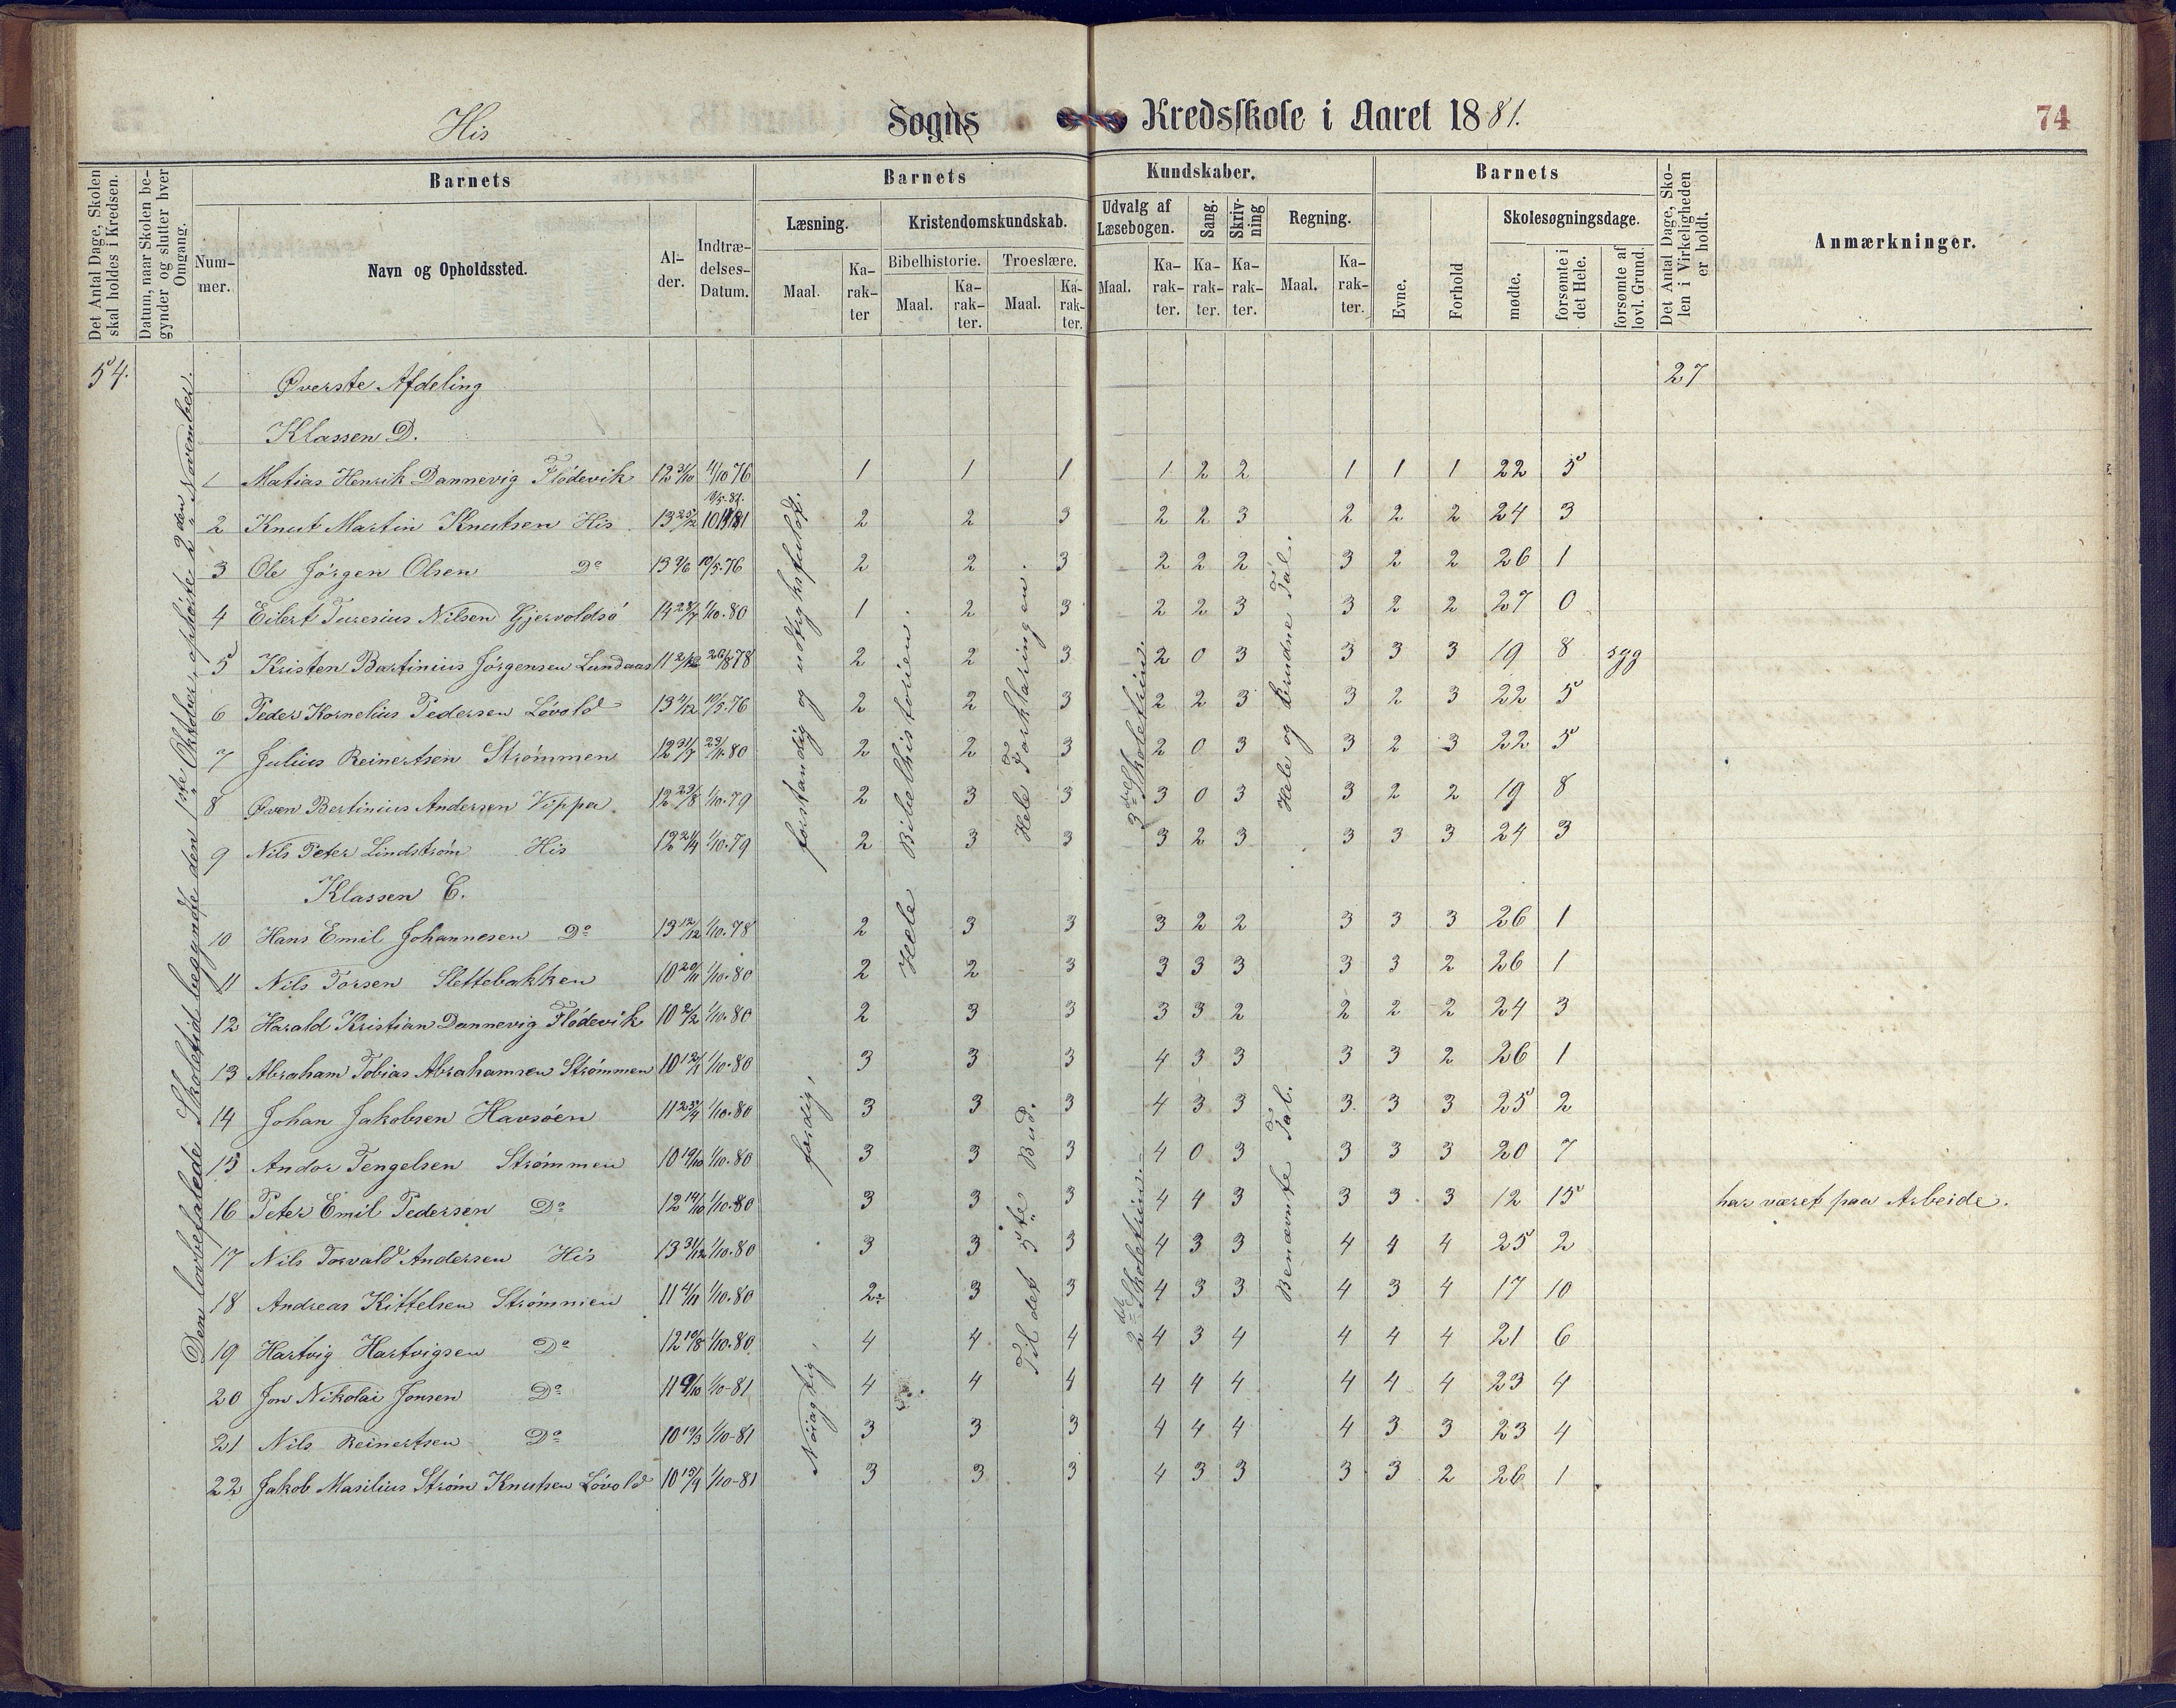 His Sogns Kredsskole i Aaret 1881. 74
Det Antal Dage, Skolen skal holdes i Kredsen.
Datum, naar Skolen begynder og slutter hver Omgang.
Barnets
Nummer.
Navn og Opholdssted.
Alder.
Indtrædelses-Datum.
Barnets Kundskaber.
Læsning.
Maal.
Karakter
Kristendomskundskab.
Bibelhistorie.
Maal.
Karakter.
Troeslære.
Maal.
Karakter.
Udvalg af Læsebogen.
Maal.
Karakter.
Sang.
Karakter.
Skrivning
Karakter.
Regning.
Maal.
Karakter.
Barnets
Evne.
Forhold
Skolesøgningsdage.
mødte.
forsømte i det Hele.
forsømte af lovl. Grund.
Det Antal Dage, Skolen i Virkeligheden er holdt.
Anmærkninger.
54.
Den lovbefalede Skoletid begyndte den 1ste Oktober, ophörte 2den November.
Øverste Afdeling 27
Klassen D.
1 Matias Henrik Dannevig Flödevik 12 31/10 4/10 76 1 1 1 1 2 2 1 1 1 22 5
2 Knut Martin Knutsen His 13 2 2 3 2 2 3 2 2 2 24 3
3 Ole Jörgen Olsen Do 13 9/6 10/5.76 2 2 3 2 2 2 3 2 2 26 1
4 Eilert Turesius Nilsen Gjervoldsö 14 28/7 1/10.80 1 2 3 2 2 3 3 2 2 27 0
5 Kristen Bartinius Jörgensen Lundaas 11 2/12 26/8 78 2 2 3 2 0 3 3 3 3 19 8 syg
6 Peder Kornelius Pedersen Lövold 13 4/12 10/5.76 2 2 3 2 2 3 3 2 3 22 5
7 Julius Reinertsen Strömmen 12 31/7 80 2 2 3 2 0 3 3 2 3 22 5
8 Bertinius Andersen Vippa 12 23/8 1/10.79 2 3 3 3 0 3 3 2 2 19 8
9 Nils Peter Lindström His 12 1/10.79 2 3 3 3 2 3 3 3 3 24 3
Klassen C.
10 Hans Emil Johannesen Do 13 12/12 1/10.78 2 3 3 3 2 2 3 3 3 26 1
11 Nils Torsen Slettebakken 10 20/11 1/10.80 2 2 3 3 3 3 3 3 2 26 1
12 Harald Kristian Dannevig Flödevik 10 2/2 1/10.80 2 3 3 3 3 2 2 2 2 24 3
13 Abraham Tobias Abrahamsen Strömmen 10 1/10.80 3 3 3 4 3 3 3 3 2 26 1
14 Johan Jakobsen Havsöen 11 1/10.80 3 3 3 4 3 3 3 3 3 25 2
15 Andor Tengelsen Strömmen 10 19/10 1/10.80 3 3 3 4 0 3 3 3 3 20 7
16 Peter Emil Pedersen Do 12 14/10 1/10.80 3 3 3 4 4 3 3 3 3 12 15 har været paa Arbeide.
17 Nils Torvald Andersen His 13 31/12 1/10.80 3 3 3 4 3 3 4 4 4 25 2
18 Andreas Kittelsen Strömmen 11 4/11 1/10.80 2 3 3 4 3 3 4 3 4 17 10
19 Hartvig Hartvigsen Do 12 19/8 1/10.80 4 4 4 4 3 4 4 4 4 21 6
20 Jon Nikolai Jonsen Do 11 9/10 1/10-81 4 4 4 4 4 4 4 4 4 23 4
21 Nils Reinertsen Do 10 19/3 1/10-81 3 3 3 4 4 4 4 3 3 23 4
22 Jakob Masilius Ström Knutsen Lövold 10 15/9 1/10-81 3 3 3 4 3 3 3 3 2 26 1
forstandig og udtryksfuldt.
færdig,
Nöiagtig,
Hele Bibelhistorien.
Hele Forklaringen.
Til det 5te Bud.
3die Skoletrin.
2det Skoletrin.
Hele og brudne Tal.
Benævnte Tal.